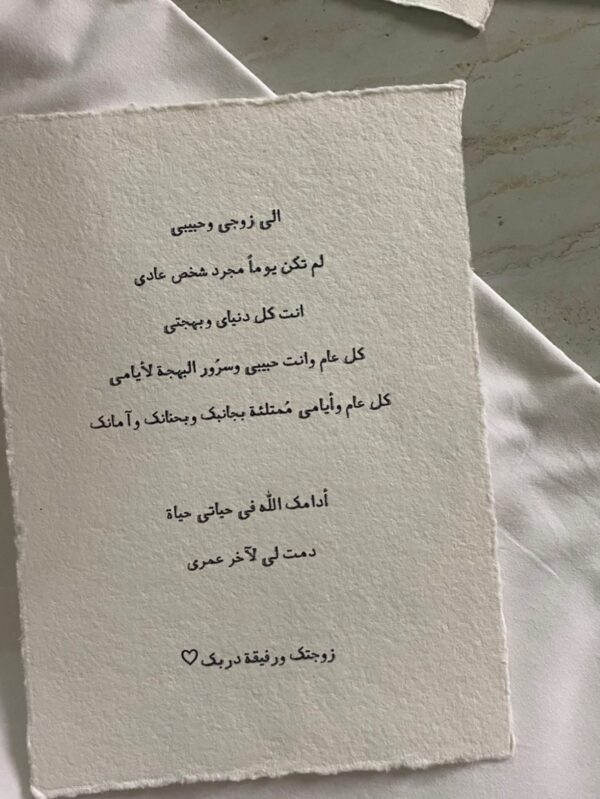 الى زوجي وحبيبي
لم تكن يوماً مجرد شخص عادي
انت كل دنياي وبهجتي
كل عام وانت حبيبي وسرُور البهجة لأيامي
كل عام وأيامي مُمتلئة بجانبك وبحنانك وآمانك
أدامك الله في حياتي حياة
دمت لي لآخر عمري
زوجتك ورفيقة دربك♡